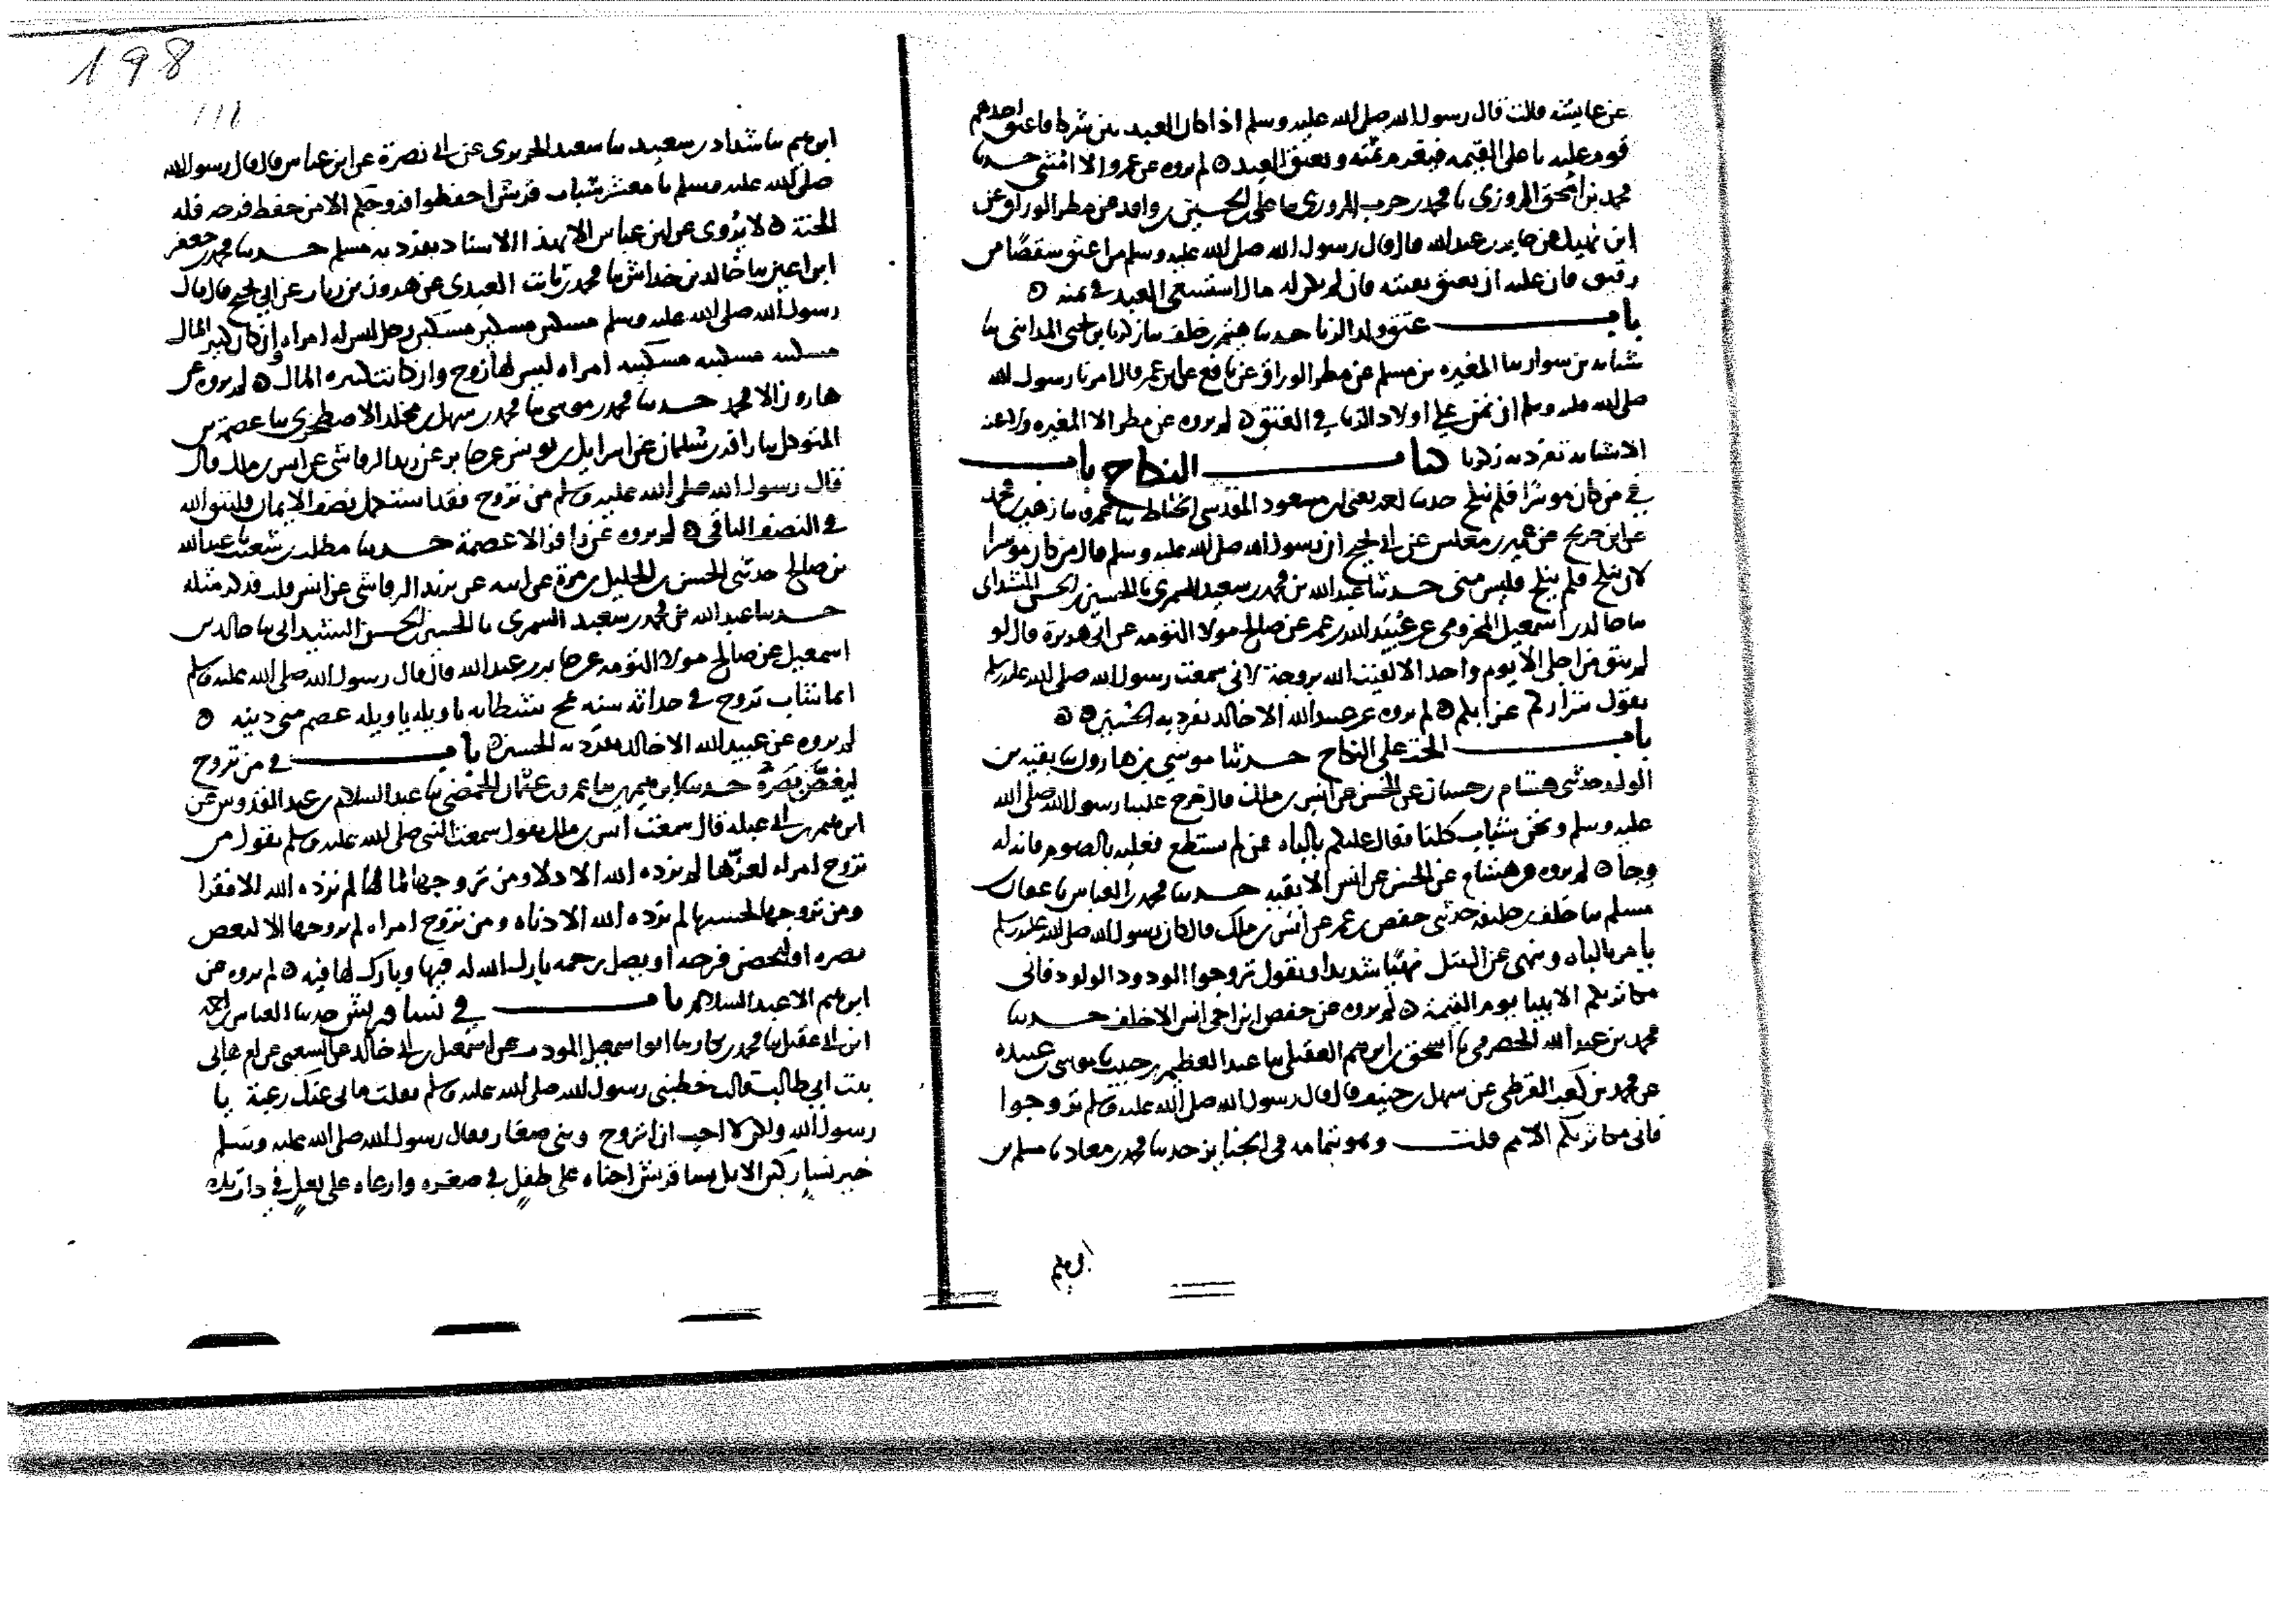 عن عايشه قالت قال رسول الله صلى الله عليه وسلم اذا كان العبد بين شركا فاعتق احدهم
قوم عليه باعلى القيمه فيغرم ثمنه ويعتق العبد ه لم يروه عن عمرو الا المثنى حدثنا
محمد بن اسحق المروزي ثنا محمد بن حرب المروزي ثنا علي بن الحسين بن واقد عن مطر الوراق عن
عن جابر بن عبد الله قال قال رسول الله صلى الله عليه وسلم من اعتق شقصا من
رقيق فان عليه ان يعتق بقيته فان لم يكن له مال استسعى العبد في ثمنه ه
باب عتق ولد الزنا حدثنا هيثم بن خلف ثنا زكريا بن يحيى المدايني ثنا
شبابه بن سوار ثنا المغيره بن مسلم عن مطر الوراق عن نافع عن ابن عمر قال امرنا رسول الله
صلى الله عليه وسلم ان نمن على اولاد الزنا في العتق ه لم يروه عن مطر الا المغيره ولا عنه
الا شبابه تفرد به زكريا كتاب النكاح باب
في من كان موسرا فلم ينكح حدثنا احمد بن مسعود المقدسي الخياط ثنا عمرو ثنا زهير بن محمد
عن ابن جريج عن عمير بن مغلس عن ابي نجيح ان رسول الله صلى الله عليه وسلم قال من كان موسرا
لان ينكح فلم ينكح فليس مني حدثنا عبد الله بن محمد بن سعيد السمري ثنا الحسين بن الحسن الشيداي
ثنا خالد بن اسمعيل المخزومي عن عبيد الله بن عمر عن صالح مولا التومه عن ابي هريرة قال لو
لم يبق من اجلي الا يوم واحد الا لقيت الله بزوجة لاني سمعت رسول الله صلى الله عليه وسلم
يقول شراركم عزابكم ه لم يروه عن عبيد الله الا خالد تفرد به الحسين ه ه
باب الحث على النكاح حدثنا موسى بن هارون ثنا بقيه بن
الوليد حدثني هشام بن حسان عن الحسن عن انس بن ملك قال خرج علينا رسول الله صلى الله
عليه وسلم ونحن شباب كلنا فقال عليكم بالباه فمن لم يستطع فعليه بالصوم فانه له
وجا ه لم يروه عن هشام عن الحسن عن انس الا بقيه حدثنا محمد بن العباس ثنا عفان بن
مسلم ثنا خلف بن خليفه حدثني حفص بن عمر عن انس بن ملك قال كان رسول الله صلى الله عليه وسلم
يامر بالباه وينهى عن التبتل نهيا شديدا ويقول تزوجوا الودود الولود فاني
مكاثر بكم الانبيا يوم القيمة ه لم يروه عن حفص ابن اخي انس الا خلف حدثنا
محمد بن عبد الله الحضرمي ثنا اسحق بن ابرهيم العقيلي ثنا عبد العظيم بن حبيب ثنا موسى بن عبيده
عن محمد بن كعب القرظي عن سهل بن حنيف قال قال رسول الله صلى الله عليه وسلم تزوجوا
فاني مكاثر بكم الامم قلت وهو بتمامه في الجنايز حدثنا محمد بن معاذ ثنا مسلم بن
ابرهيم
198
ابرهيم ثنا شداد بن سعيد ثنا سعيد الجريري عن ابي نضرة عن ابن عباس قال قال رسول الله
صلى الله عليه وسلم يا معشر شباب قريش احفظوا فروجكم الا من حفظ فرجه فله
الجنة ه لا يروى عن ابن عباس الا بهذا الاسناد تفرد به مسلم حدثنا محمد بن جعفر
ابن اعين ثنا خالد بن خداش ثنا محمد بن ثابت العبدي عن هرون بن رياب عن ابي نجيح قال قال
رسول الله صلى الله عليه وسلم مسكين مسكين مسكين رجل ليس له امراه وان كان كثير المال
مسكينه مسكينه مسكينه امراه ليس لها زوج وان كانت كثيره المال ه لم يروه عن
هارون الا محمد حدثنا محمد بن موسى ثنا محمد بن سهل بن مخلد الاصطخري ثنا عصمة بن
المتوكل ثنا زافر بن سليمان عن اسرايل بن يونس عن جابر عن يزيد الرقاشي عن انس بن ملك قال
قال رسول الله صلى الله عليه وسلم من تزوج فقد استكمل نصف الايمان فليتق الله
في النصف الباقي ه لم يروه عن زافر الا عصمة حدثنا مطلب بن شعيب ثنا عبد الله
بن صالح حدثني الحسن بن الخليل بن مرة عن ابيه عن يزيد الرقاشي عن انس قلت فذكر مثله
حدثنا عبد الله بن محمد بن سعيد السمري ثنا الحسين بن الحسن الشيداي ثنا خالد بن
اسمعيل عن صالح مولا التومه عن جابر بن عبد الله قال قال رسول الله صلى الله عليه وسلم
ايما شاب تزوج في حداثه سنه عج شيطانه يا ويله يا ويله عصم مني دينه ه
لم يروه عن عبيد الله الا خالد تفرد به الحسين ه باب في من تزوج
ليغض بصره حدثنا ابرهيم ثنا عمرو بن عثمان الحمصي ثنا عبد السلام بن عبد القدوس عن
ابرهيم بن ابي عبله قال سمعت انس بن ملك يقول سمعت النبي صلى الله عليه وسلم يقول من
تزوج امراه لعزها لم يزده الله الا ذلا ومن تزوجها لمالها لم يزده الله الا فقرا
ومن تزوجها لحسبها لم يزده الله الا دناه ومن تزوج امراه لم يتزوجها الا ليغض
بصره او ليحصن فرجه او يصل رحمه بارك الله له فيها وبارك لها فيه ه لم يروه عن
ابرهيم الا عبد السلام باب في نسا قريش حدثنا العباس بن احمد
ابن ابي عقيل ثنا محمد بن بكار ثنا ابو اسمعيل المودب عن اسمعيل بن ابي خالد عن الشعبي عن ام هاني
بنت ابي طالب قالت خطبني رسول الله صلى الله عليه وسلم فقلت ما بي عنك رغبة يا
رسول الله ولكن لا احب ان اتزوج وبني صغار فقال رسول الله صلى الله عليه وسلم
خير نسا ركبن الابل نسا قريش احناه على طفل في صغره وارعاه على بعل في ذات يده